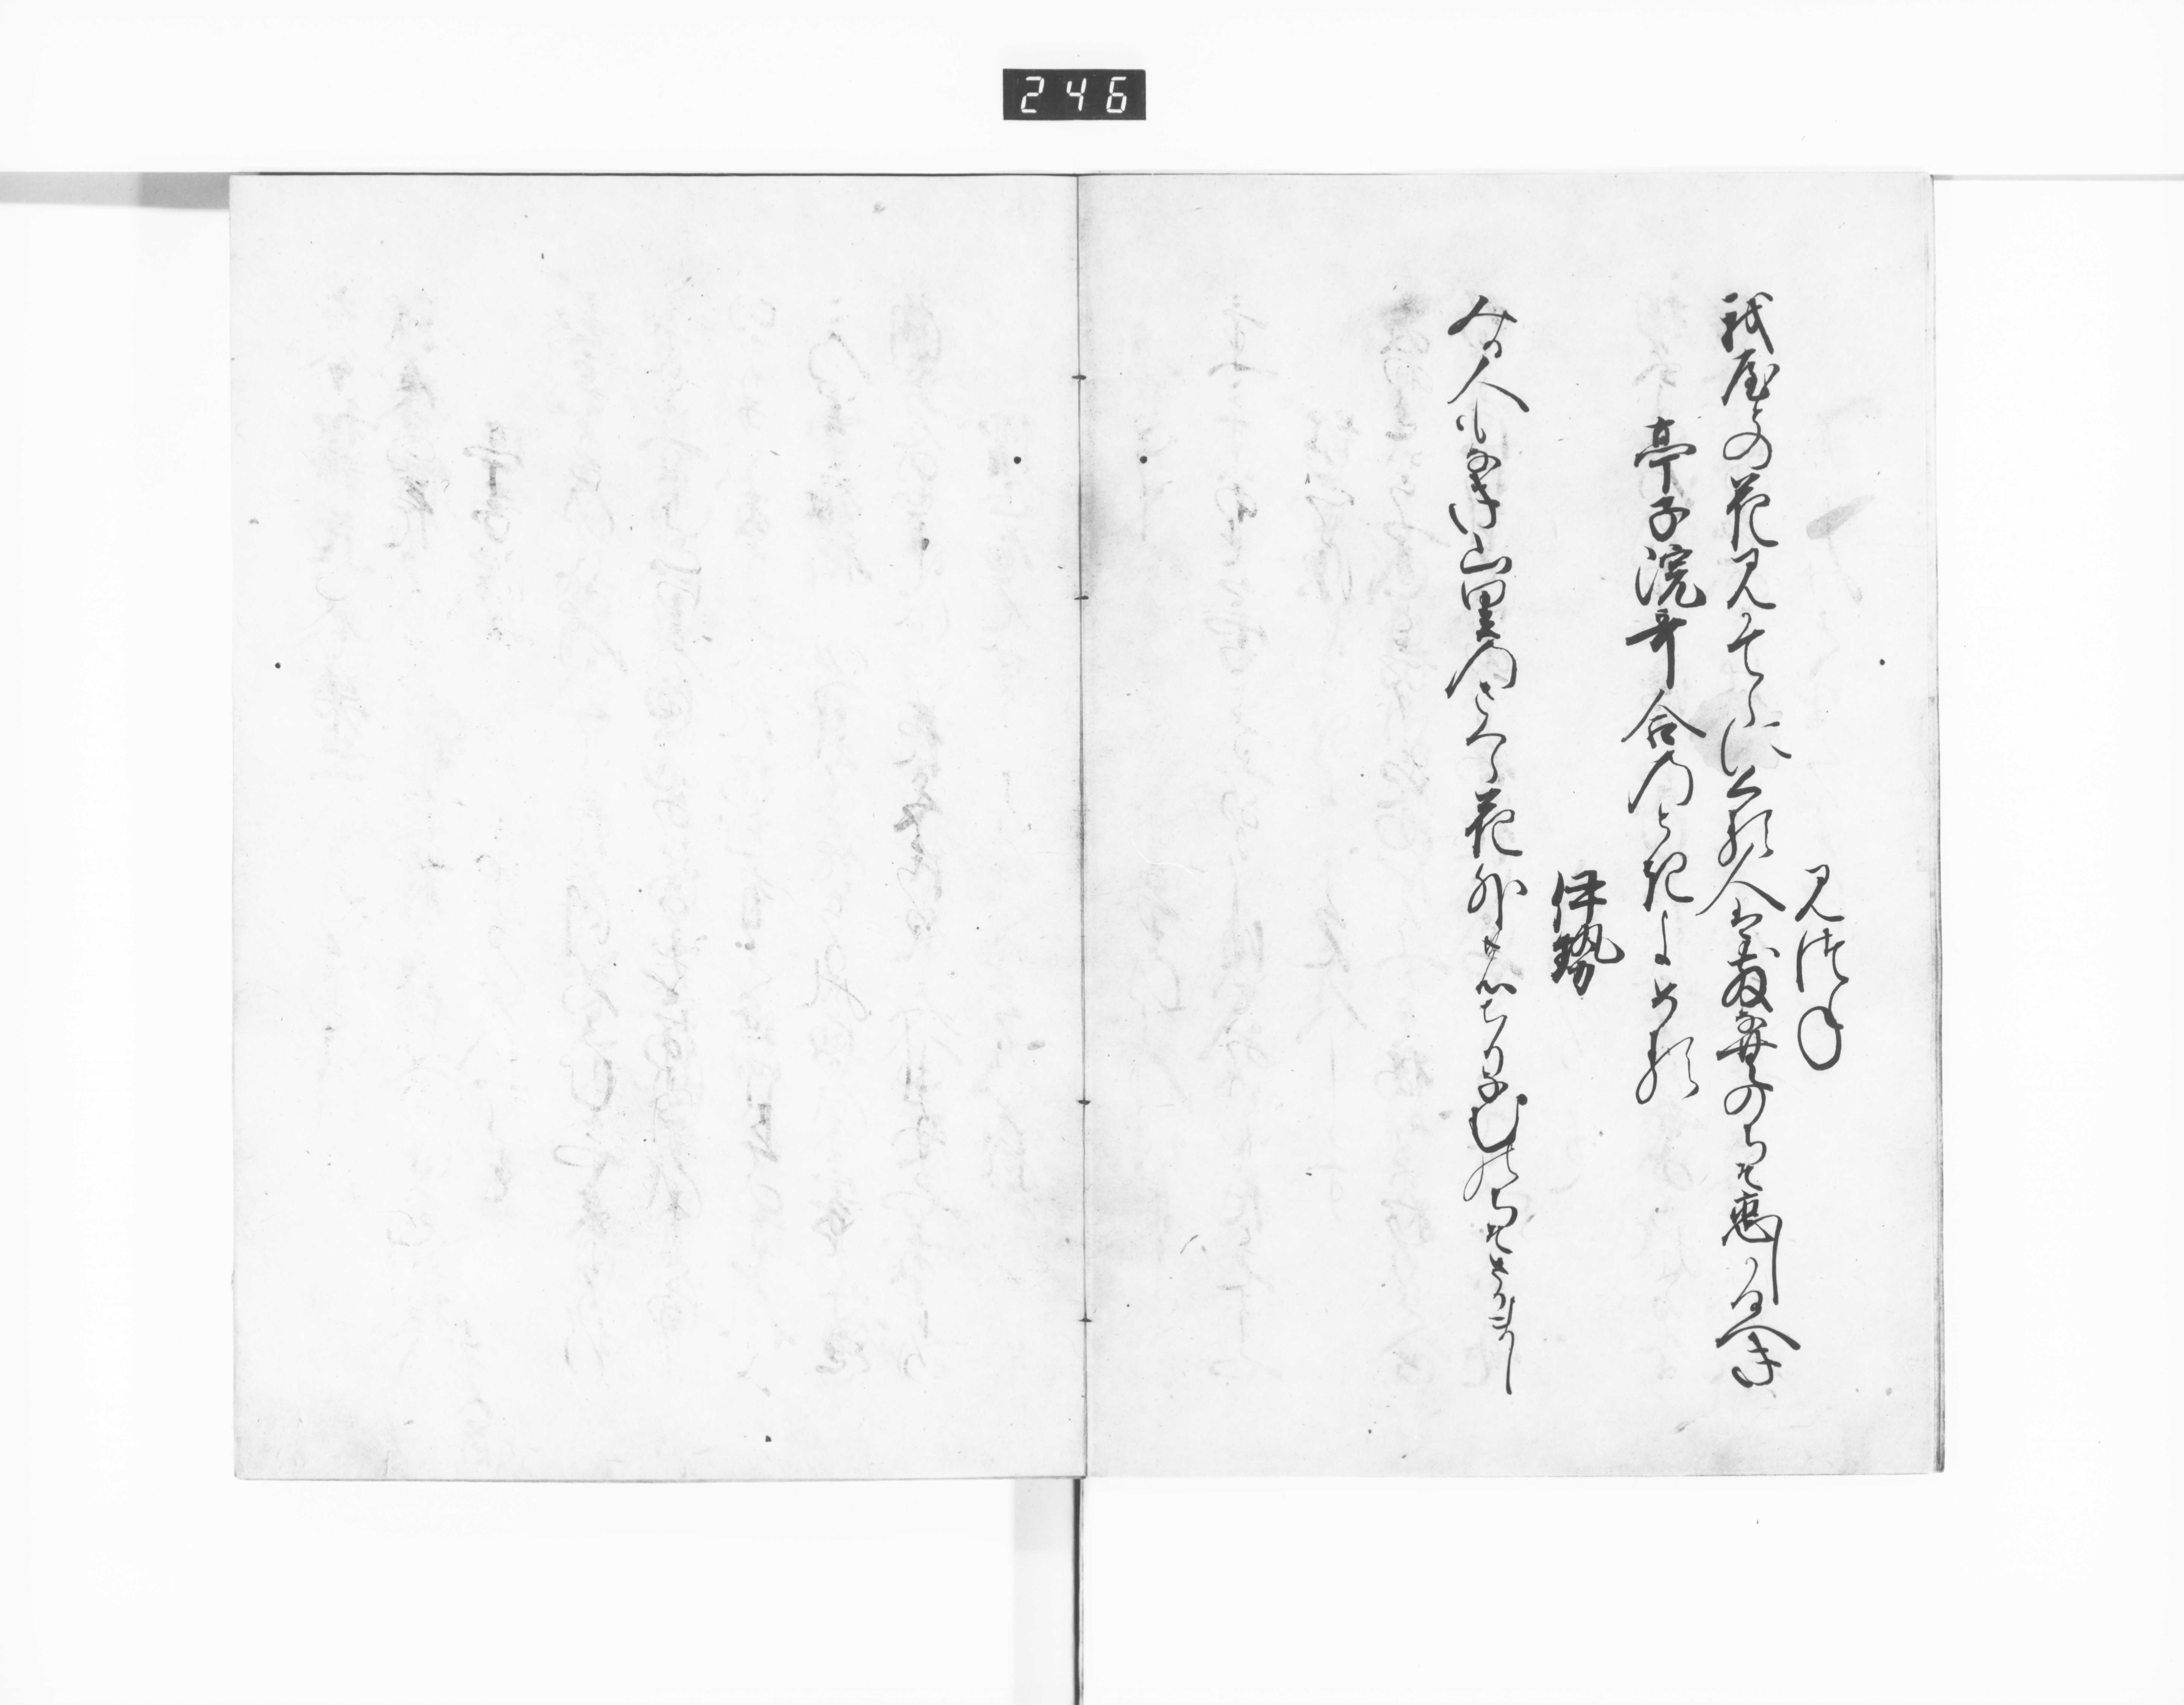 246
見つね
我屋との花見かてらにくる人はちりなむのちそ恋しかるへき
亭子院哥合のときよめる
伊勢
みる人もなき山里のさくら花外のちりなむのちそさかまし